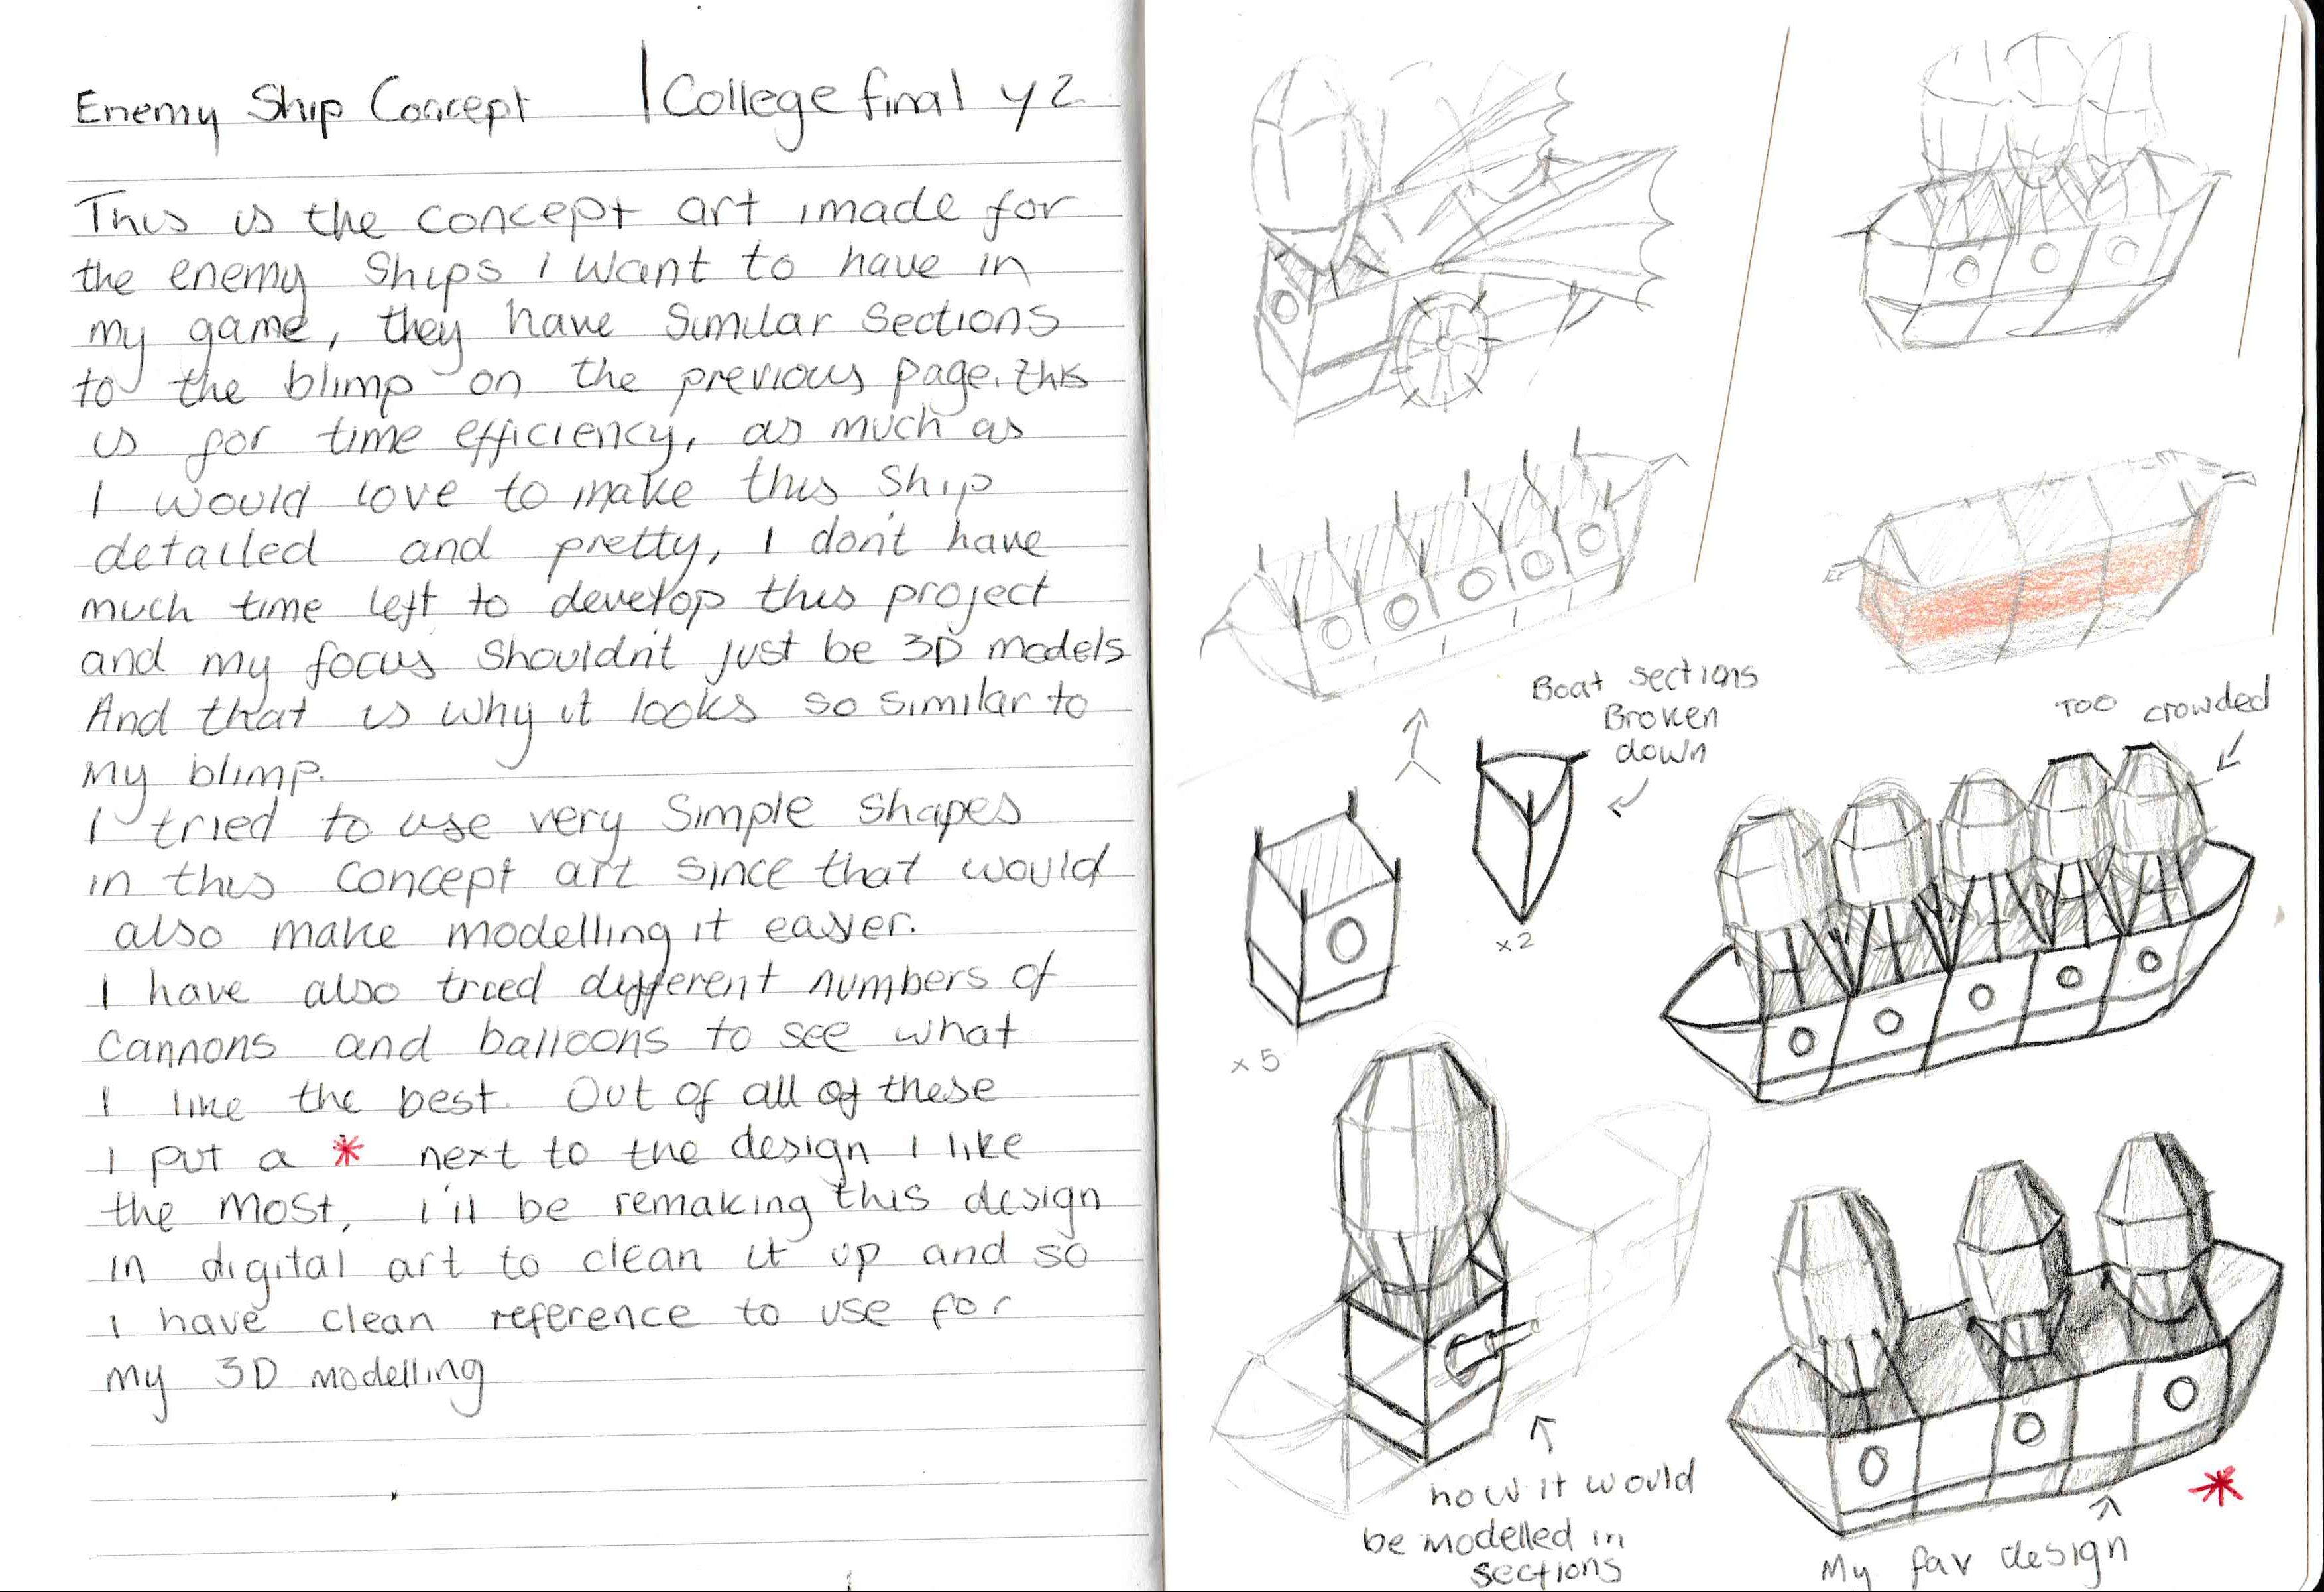 Enemy Ship Concept | College final y2
This is the concept art i made for
the enemy ships i want to have in
my game, they have similar sections
to the blimp on the previous page. this
is for time efficiency, as much as
I would love to make this ship
detailed and pretty, I don't have
much time left to develop this project
and my focus shouldn't just be 3D models
And that is why it looks so similar to
my blimp.
I tried to use very simple shapes
in this concept art since that would
also make modelling it easier.
I have also tried different numbers of
cannons and balloons to see what
I like the best. Out of all of these
I put a * next to the design I like
the most, i'll be remaking this design
in digital art to clean it up and so
I have clean reference to use for
my 3D modelling
Boat sections
Broken
down
Too crowded
x2
x5
how it would
be modelled in
sections
My fav design
*